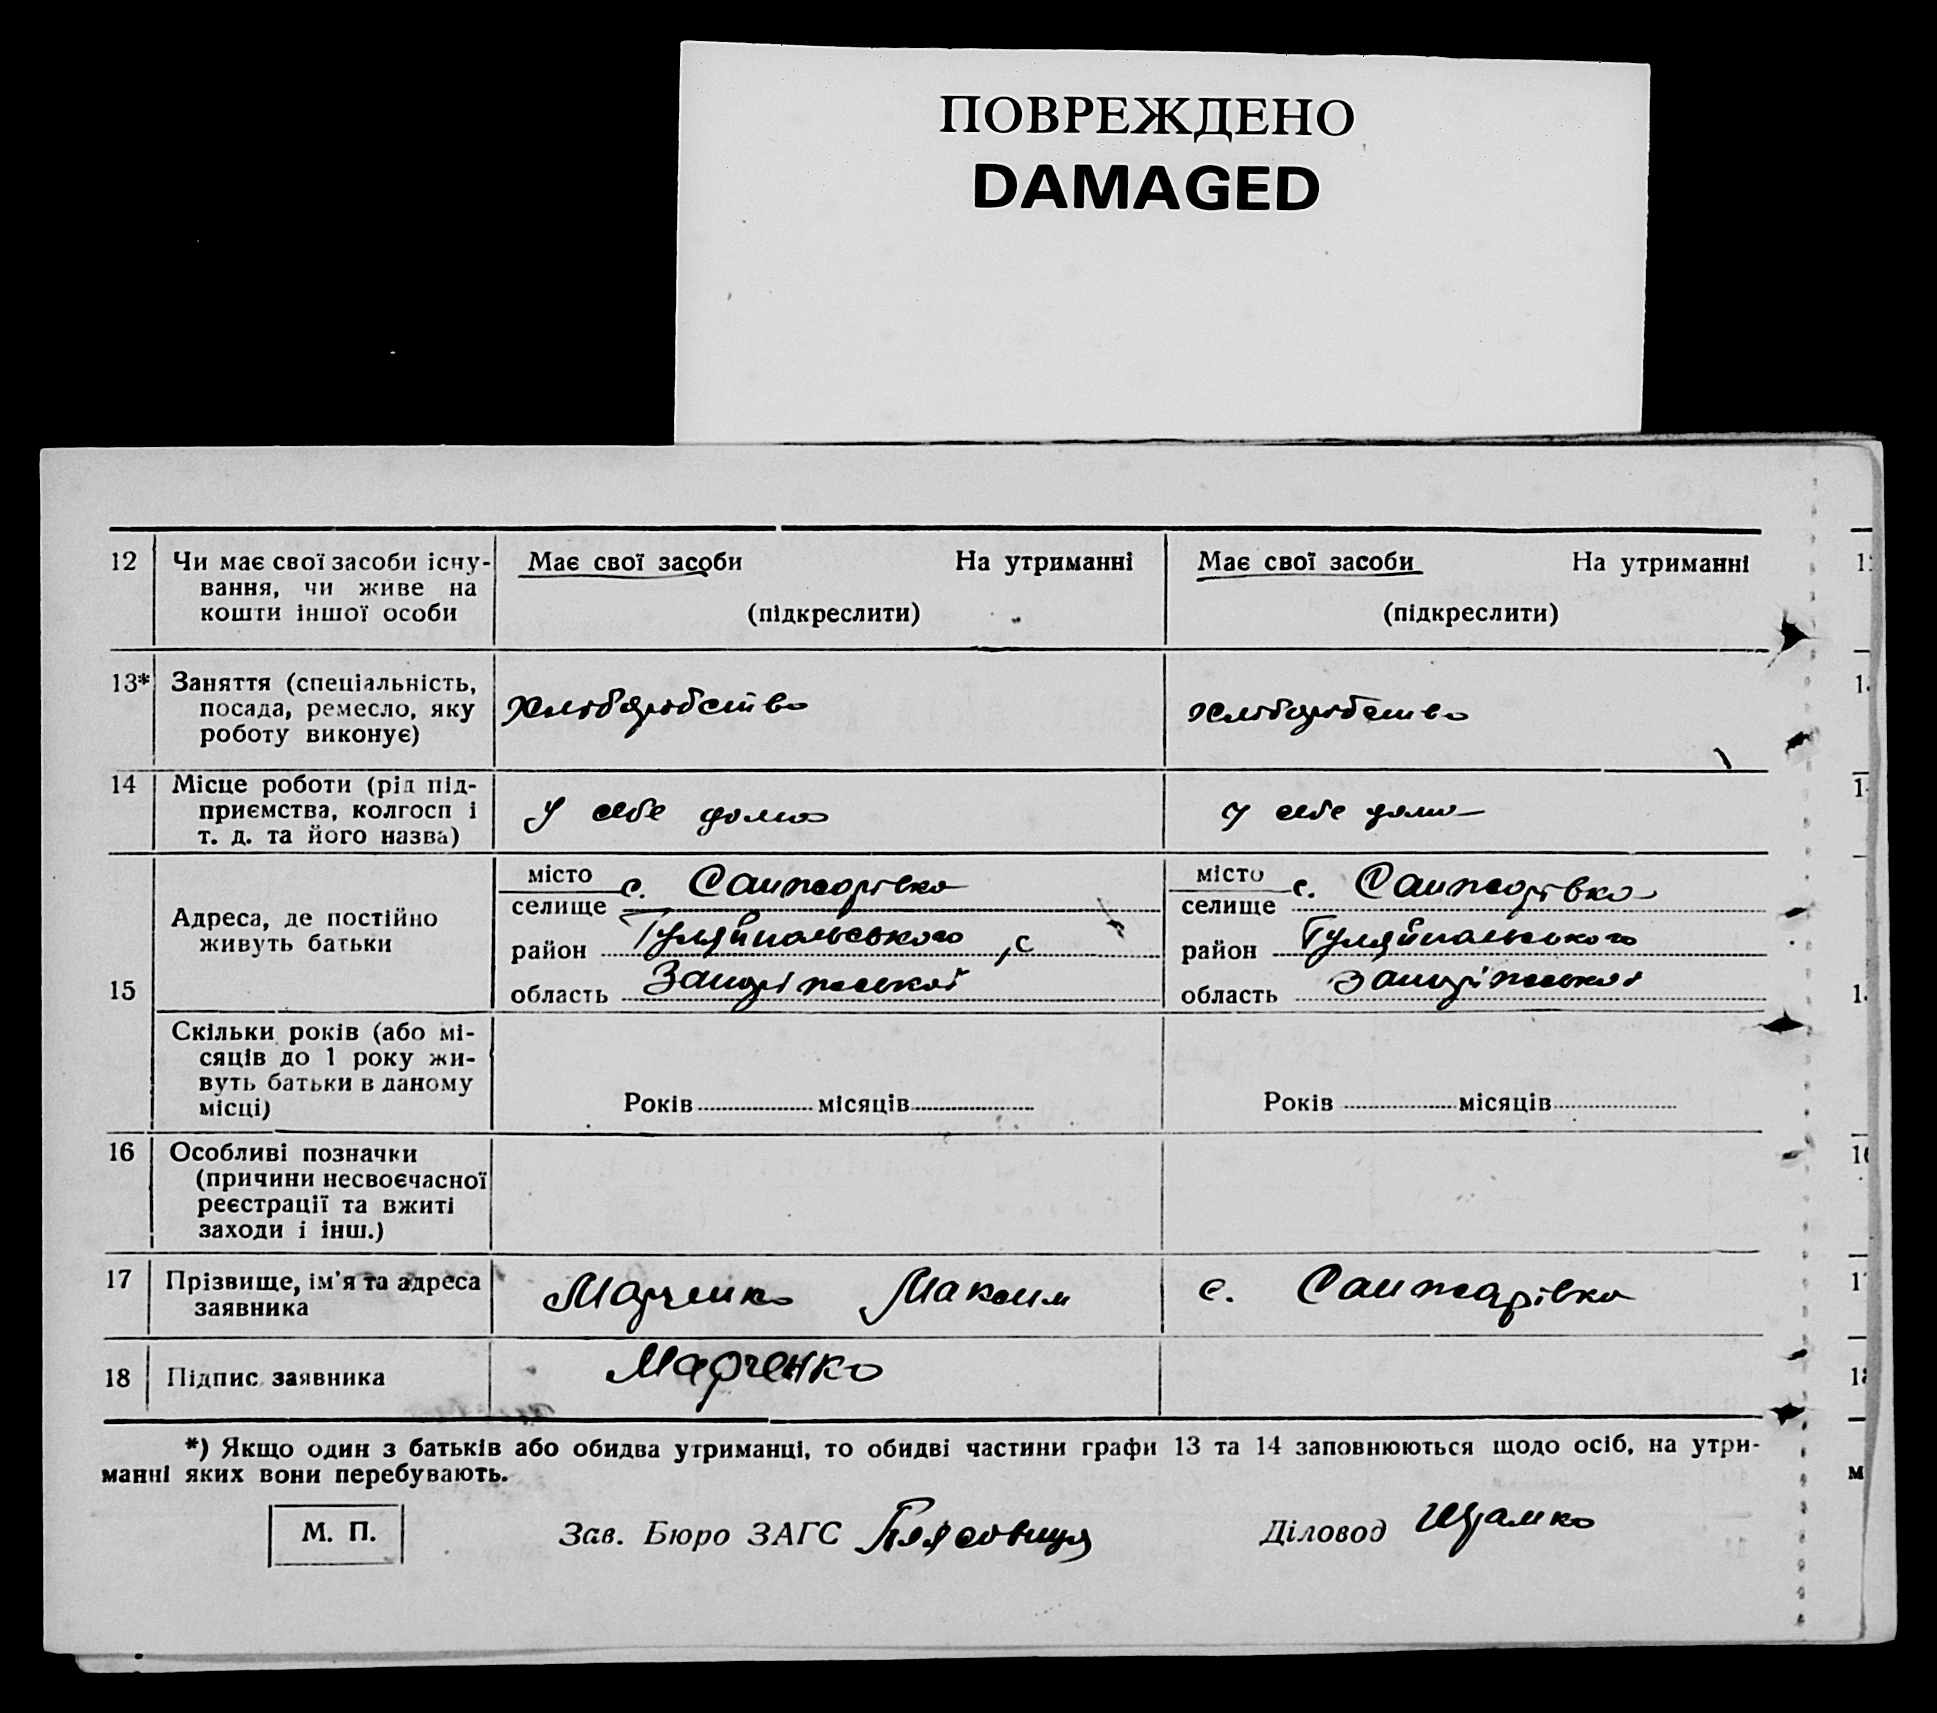 ПОВРЕЖДЕНО
DAMAGED
12 Чи має свої засоби існу- Має свої засоби На утриманні Має свої засоби На утриманні
вання, чи живе на
кошти іншої особи (підкреслити) (підкреслити)
13* Заняття (спеціальність,
посада, ремесло, яку хліборобство хліборобство
роботу виконує)
14 Місце роботи (рід під-
приємства, колгосп і У себе дома У себе дома
т. д. та його назва)
місто с. Санжарівка місто с. Санжарівка
Адреса, де постійно селище селище
живуть батьки район Гуляйпольського район Гуляйпольського
15 область Запоріжської область Запоріжської
Скільки років (або мі-
сяців до 1 року жи-
вуть батьки в даному
місці) Років місяців Років місяців
16 Особливі позначки
(причини несвоєчасної
реєстрації та вжиті
заходи і інш.)
17 Прізвище, ім'я та адреса Марченко Максим с. Санжарівка
заявника
18 Підпис заявника Марченко
*) Якщо один з батьків або обидва утриманці, то обидві частини графи 13 та 14 заповнюються щодо осіб, на утри-
манні яких вони перебувають.
М. П. Зав. Бюро ЗАГС Діловод